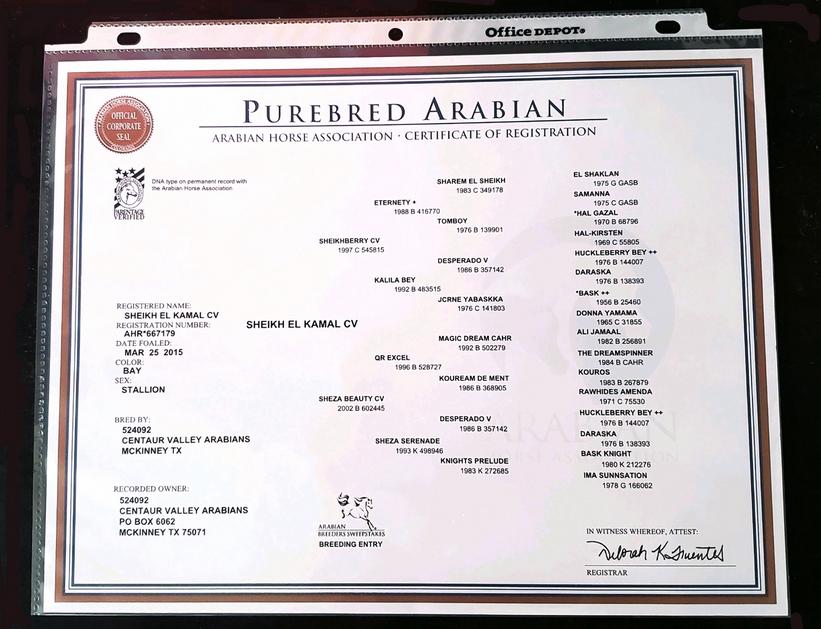 Office DEPOT®
PUREBRED ARABIAN
ARABIAN HORSE ASSOCIATION · CERTIFICATE OF REGISTRATION
ARABIAN HORSE ASSOCIATION
OFFICIAL
CORPORATE
SEAL
PARENTAGE
VERIFIED
DNA type on permanent record with
the Arabian Horse Association
REGISTERED NAME:
SHEIKH EL KAMAL CV
REGISTRATION NUMBER:
AHR*667179
DATE FOALED:
MAR 25 2015
COLOR:
BAY
SEX:
STALLION
BRED BY:
524092
CENTAUR VALLEY ARABIANS
MCKINNEY TX
RECORDED OWNER:
524092
CENTAUR VALLEY ARABIANS
PO BOX 6062
MCKINNEY TX 75071
SHEIKH EL KAMAL CV
SHEIKHBERRY CV
1997 C 545815
SHEZA BEAUTY CV
2002 B 602445
ETERNETY +
1988 B 416770
KALILA BEY
1992 B 483515
QR EXCEL
1996 B 528727
SHEZA SERENADE
1993 K 498946
SHAREM EL SHEIKH
1983 C 349178
TOMBOY
1976 B 139901
DESPERADO V
1986 B 357142
JCRNE YABASKKA
1976 C 141803
MAGIC DREAM CAHR
1992 B 502279
KOUREAM DE MENT
1986 B 368905
DESPERADO V
1986 B 357142
KNIGHTS PRELUDE
1983 K 272685
EL SHAKLAN
1975 G GASB
SAMANNA
1975 C GASB
*HAL GAZAL
1970 B 68796
HAL-KIRSTEN
1969 C 55805
HUCKLEBERRY BEY ++
1976 B 144007
DARASKA
1976 B 138393
*BASK ++
1956 B 25460
DONNA YAMAMA
1965 C 31855
ALI JAMAAL
1982 B 256891
THE DREAMSPINNER
1984 B CAHR
KOUROS
1983 B 267879
RAWHIDES AMENDA
1971 C 75530
HUCKLEBERRY BEY ++
1976 B 144007
DARASKA
1976 B 138393
BASK KNIGHT
1980 K 212276
IMA SUNNSATION
1978 G 166062
ARABIAN
HORSE ASSOCIATION
ARABIAN
BREEDERS SWEEPSTAKES
BREEDING ENTRY
IN WITNESS WHEREOF, ATTEST:
Deborah K. Fuentes
REGISTRAR